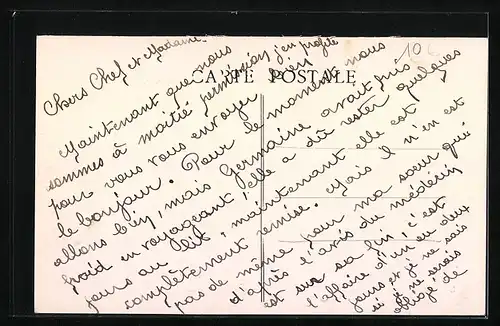 10
CARTE POSTALE
Chers Chef et Madame.
Maintenant que nous
sommes à moitié permission j'en profite
pour vous envoyer bien
le bonjour. Pour le moment nous
allons bien, mais Germaine avait pris
froid en voyageant elle a dû rester quelques
jours au lit, maintenant elle est
complètement remise. Mais il n'en est
pas de même pour ma sœur qui
d'après l'avis du médecin
est sur sa fin, c'est
l'affaire d'un ou deux
jours et je ne sais
si je ne serais
obligé de